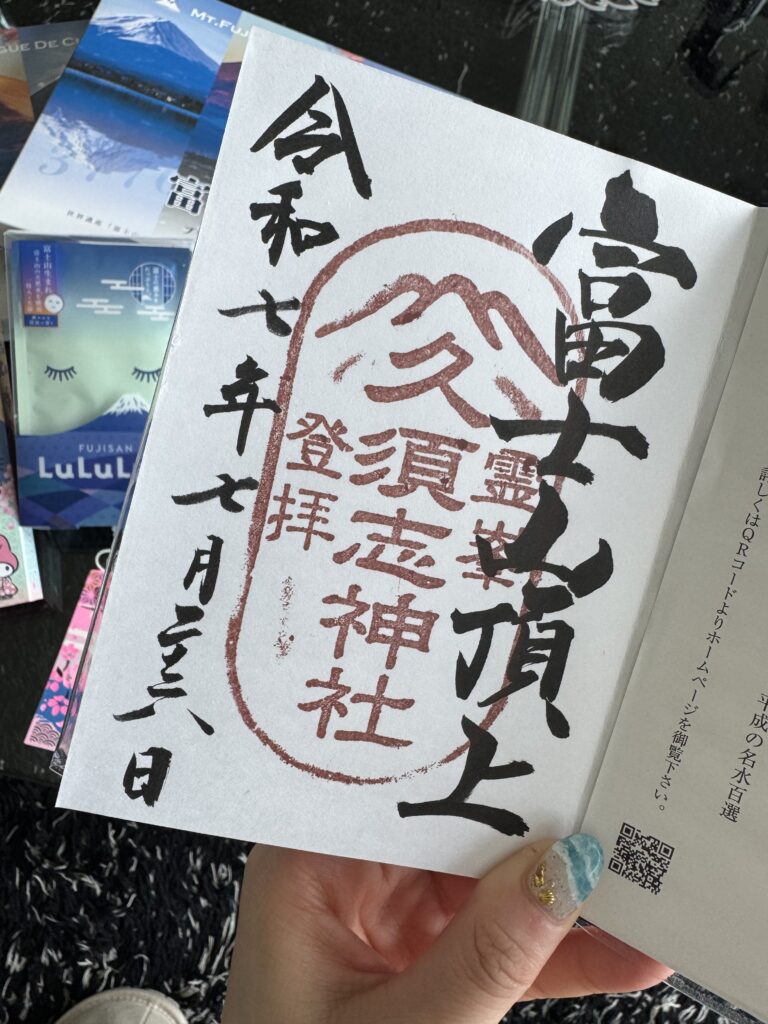 平成の名水百選
詳しくはQRコードよりホームページを御覧下さい。
富士山頂上
霊峯
久須志神社
登拝
令和七年七月二十六日
MT.FUJ
3776
富
FUJISAN
LuLuLu